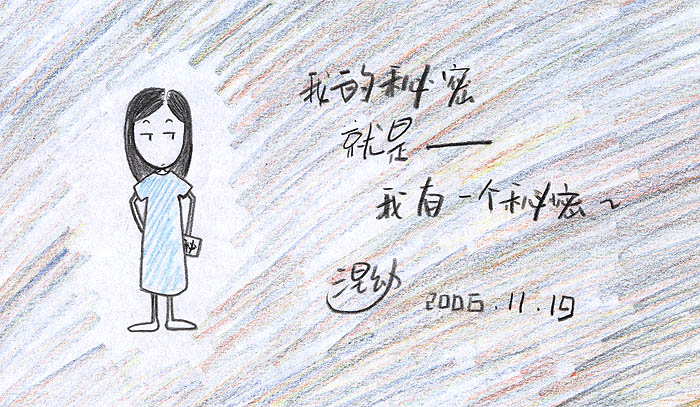 我的秘密
就是——
我有一个秘密~
混幼 2006.11.19
秘